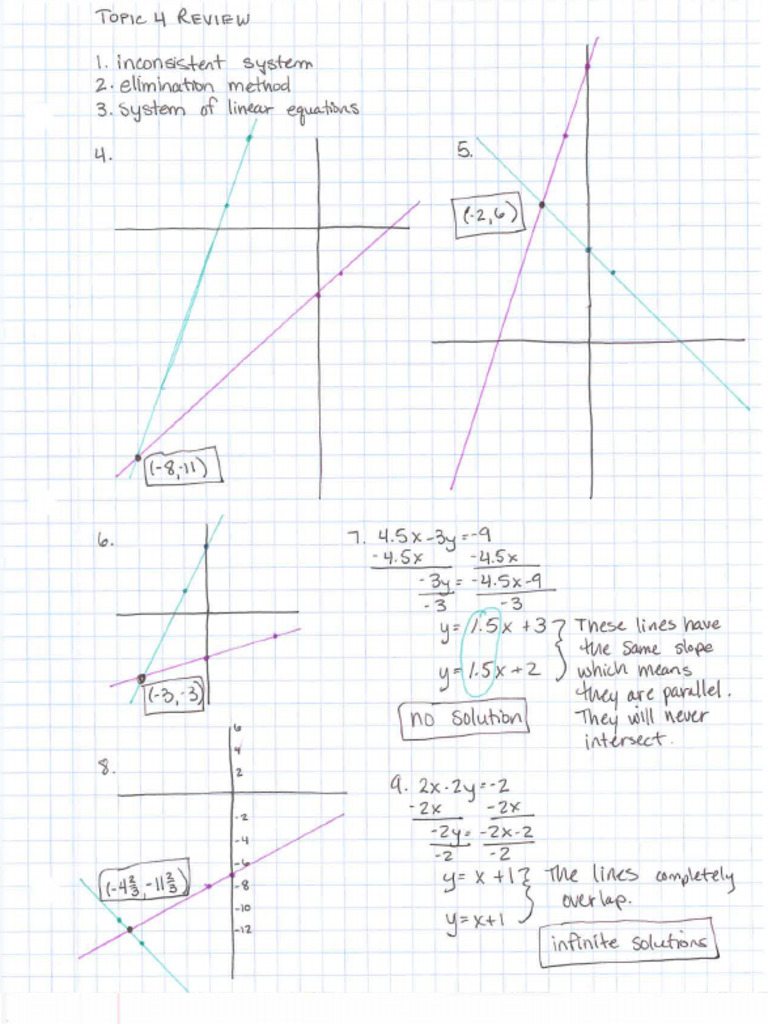 TOPIC 4 REVIEW
1. inconsistent system
2. elimination method
3. system of linear equations
4.
(-8,-11)
5.
(-2,6)
6.
(-3,-3)
7. 4.5x-3y=-9
-4.5x -4.5x
-3y = -4.5x-9
-3 -3
y= 1.5x +3
y= 1.5x+2
These lines have
the same slope
which means
they are parallel.
They will never
intersect.
no solution
8.
6
4
2
-2
-4
-6
-8
-10
-12
(-4⅔,-11⅔)
9. 2x-2y=-2
-2x -2x
-2y= -2x-2
-2 -2
y= x+1
y=x+1
The lines completely
overlap.
infinite solutions